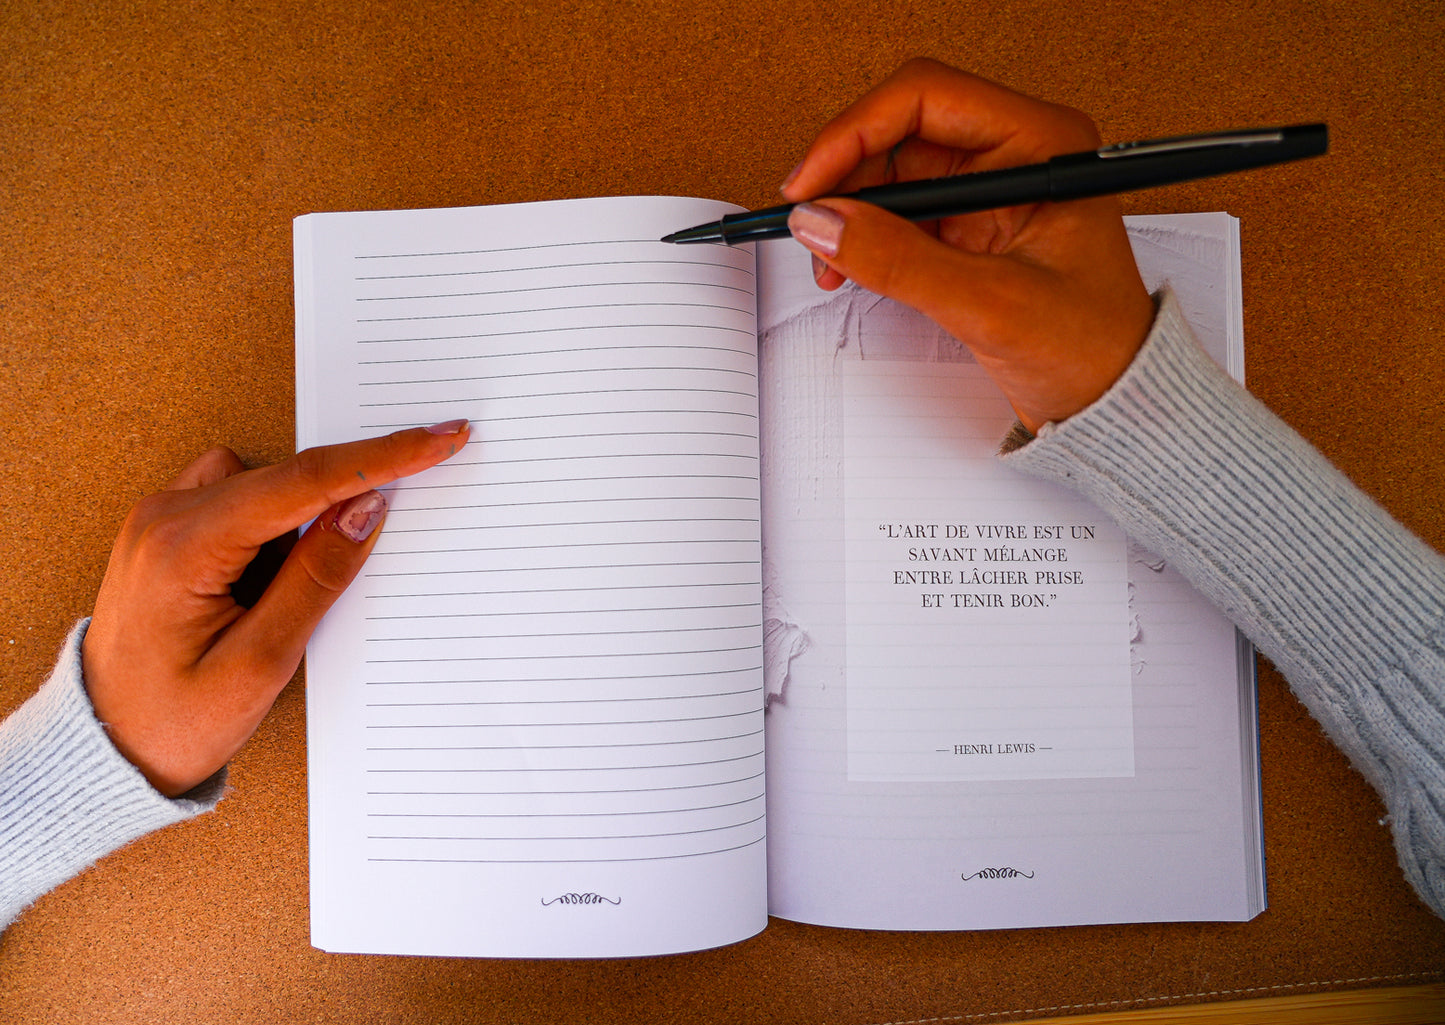 “L’ART DE VIVRE EST UN
SAVANT MÉLANGE
ENTRE LÂCHER PRISE
ET TENIR BON.”
— HENRI LEWIS —